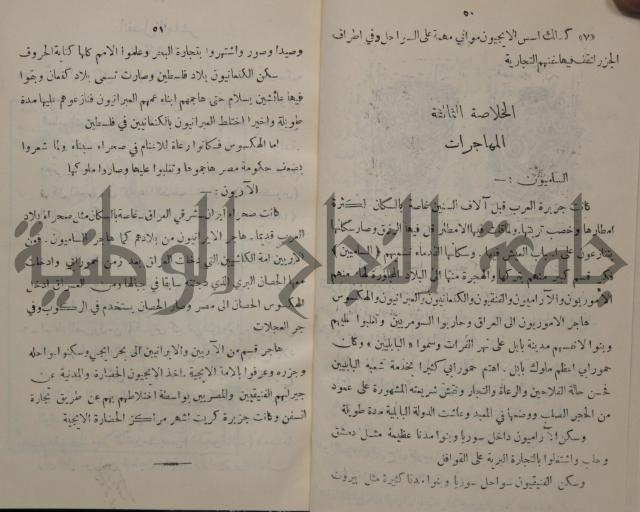 ٥٠
«٧» كذلك اسس الايجيون موانئ مهمة على السواحل وفي اطراف
الجزر لتقف فيها سفنهم التجارية
الخلاصة الثالثة
المهاجرات
الساميون : —
كانت جزيرة العرب قبل آلاف السنين غاصة بالسكان لكثرة
امطارها وخصب تربتها. ولما قلت فيها الامطار قل فيها الرزق وصار سكانها
يتنازعون على اسباب العيش فيها. وسكانها القدماء نسميهم ( الساميين )
الاموريون والآراميون والفنيقيون والكنعانيون والعبرانيون والهكسوس
هاجر الاموريون الى العراق وحاربوا السومريين وتغلبوا عليهم
وبنوا لانفسهم مدينة بابل على نهر الفرات وسموا « البابليين » وكان
حمورابي اعظم ملوك بابل . اهتم حمورابي كثيرا بخدمة شعبه البابليين
فحسن حالة الفلاحين والرعاة والتجار ونقش شريعته المشهورة على عمود
من الحجر الصلب ووضعها في المعبد وعاشت الدولة البابلية مدة طويلة
وسكن الآراميون داخل سوريا وبنوا مدنا عظيمة مثل دمشق
وحلب واشتغلوا بالتجارة البرية على القوافل
وسكن الفنيقيون سواحل سوريا وبنوا مدنا كثيرة مثل بيروت
٥١
وصيدا وصور واشتهروا بتجارة البحر وعلموا الامم كلها كتابة الحروف
سكن الكنعانيون بلاد فلسطين وصارت تسمى بلاد كنعان وبقوا
فيها عائشين بسلام حتى هاجمهم ابناء عمهم العبرانيون فنازعوهم عليها مدة
طويلة واخيرا اختلط العبرانيون بالكنعانيين في فلسطين
اما الهكسوس فكانوا رعاة للاغنام في صحراء سيناء ولما شعروا
بضعف حكومة مصر هاجموها وتغلبوا عليها وصاروا ملوكها
الآريون : —
كانت صحراء ايران شرقي العراق غاصة بالسكان مثل صحراء بلاد
العرب قديما. هاجر الايرانيون من بلادهم كما هاجر الساميون. فمن
الآريين امة الكاشيين التي دخلت العراق بعد زمن حمورابي وادخلت
معها الحصان البري الذي دجنته سابقا في جبالها ومن العراق ادخل
الهكسوس الحصان الى مصر وصار الحصان يستخدم في الركوب وفي
جر العجلات
هاجر قسم من الآريين والايرانيين الى بحر ايجي وسكنوا سواحله
وجزره وعرفوا بالامة الايجية . اخذ الايجيون الحضارة والمدنية عن
جيرانهم الفنيقيين والمصريين بواسطة اختلاطهم بهم عن طريق تجارة
السفن وكانت جزيرة كريت اشهر مراكز الحضارة الايجية
جامعة النجاح الوطنية